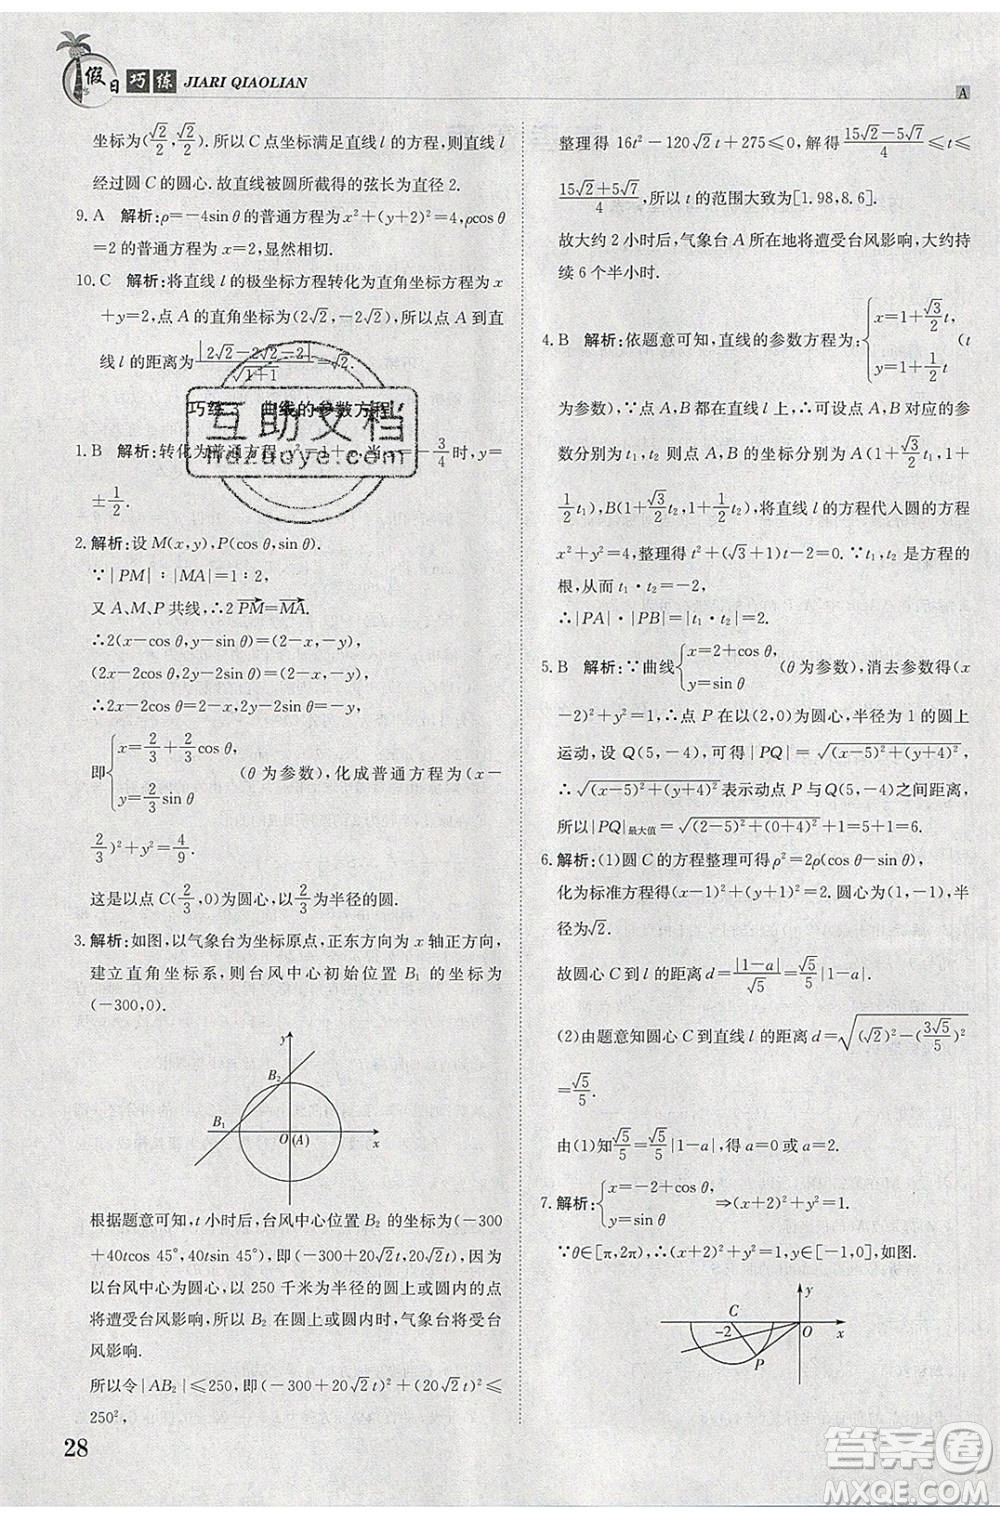 假日 巧练 JIARI QIAOLIAN
A
坐标为(√2/2, √2/2). 所以 C 点坐标满足直线 l 的方程, 则直线 l
经过圆 C 的圆心. 故直线被圆所截得的弦长为直径 2.
9. A 解析: ρ=-4sin θ的普通方程为 x²+(y+2)²=4, ρcos θ
=2 的普通方程为 x=2, 显然相切.
10. C 解析: 将直线 l 的极坐标方程转化为直角坐标方程为 x
+y=2, 点 A 的直角坐标为(2√2, -2√2), 所以点 A 到直
线 l 的距离为|2√2-2√2-2|/√(1+1)=√2.
巧练 曲线的参数方程
1. B 解析: 转化为普通方程 y²=1+x, 当 x=-3/4时, y=
±1/2.
2. 解析: 设 M(x, y), P(cos θ, sin θ).
∵|PM|∶|MA|=1∶2,
又 A、M、P 共线, ∴2PM=MA.
∴2(x-cos θ, y-sin θ)=(2-x, -y),
(2x-2cos θ, 2y-2sin θ)=(2-x, -y),
∴2x-2cos θ=2-x, 2y-2sin θ=-y,
即{x=2/3+2/3cos θ, y=2/3sin θ (θ为参数), 化成普通方程为(x-
2/3)²+y²=4/9.
这是以点 C(2/3, 0)为圆心, 2/3为半径的圆.
3. 解析: 如图, 以气象台为坐标原点, 正东方向为 x 轴正方向,
建立直角坐标系, 则台风中心初始位置 B₁ 的坐标为
(-300, 0).
y
B₂
B₁
O (A)
x
根据题意可知, t 小时后, 台风中心位置 B₂ 的坐标为(-300
+40tcos 45°, 40tsin 45°), 即(-300+20√2t, 20√2t), 因为
以台风中心为圆心, 以 250 千米为半径的圆上或圆内的点
将遭受台风影响, 所以 B₂ 在圆上或圆内时, 气象台将受台
风影响.
所以令|AB₂|≤250, 即(-300+20√2t)²+(20√2t)²≤
250²,
28
整理得 16t²-120√2t+275≤0, 解得(15√2-5√7)/4≤t≤
(15√2+5√7)/4, 所以 t 的范围大致为[1.98, 8.6].
故大约 2 小时后, 气象台 A 所在地将遭受台风影响, 大约持
续 6 个半小时.
4. B 解析: 依题意可知, 直线的参数方程为: {x=1+√3/2t, y=1+1/2t (t
为参数), ∵点 A、B 都在直线 l 上, ∴点 A、B 对应的参
数分别为 t₁、t₂ 则点 A、B 的坐标分别为 A(1+√3/2t₁, 1+
1/2t₁), B(1+√3/2t₂, 1+1/2t₂), 将直线 l 的方程代入圆的方程
x²+y²=4, 整理得 t²+(√3+1)t-2=0. ∵t₁、t₂ 是方程的
根, 从而 t₁·t₂=-2.
∴|PA|·|PB|=|t₁·t₂|=2.
5. B 解析: ∵曲线{x=2+cos θ, y=sin θ (θ为参数), 消去参数得(x
-2)²+y²=1, ∴点 P 在以(2, 0)为圆心, 半径为 1 的圆上
运动, 设 Q(5, -4), 可得|PQ|=√((x-5)²+(y+4)²).
∴√((x-5)²+(y+4)²)表示动点 P 与 Q(5, -4)之间距离,
所以|PQ|最大值=√((2-5)²+(0+4)²)+1=5+1=6.
6. 解析: (1)圆 C 的方程整理可得 ρ²=2ρ(cos θ+sin θ),
化为标准方程得(x-1)²+(y-1)²=2. 圆心为(1, 1), 半
径为√2.
故圆心 C 到 l 的距离 d=|1-a|/√5=√5/5|1-a|.
(2)由题意知圆心 C 到直线 l 的距离 d=√((√2)²-(3√5/5)²)
=√5/5.
由(1)知√5/5=√5/5|1-a|, 得 a=0 或 a=2.
7. 解析: {x=-2+cos θ, y=sin θ ⇒(x+2)²+y²=1.
∵θ∈[π, 2π), ∴y∈[-1, 0], 如图.
y
C
-2
O
x
P
互助文档
huzuoye.com
答案卷
MXQE.COM